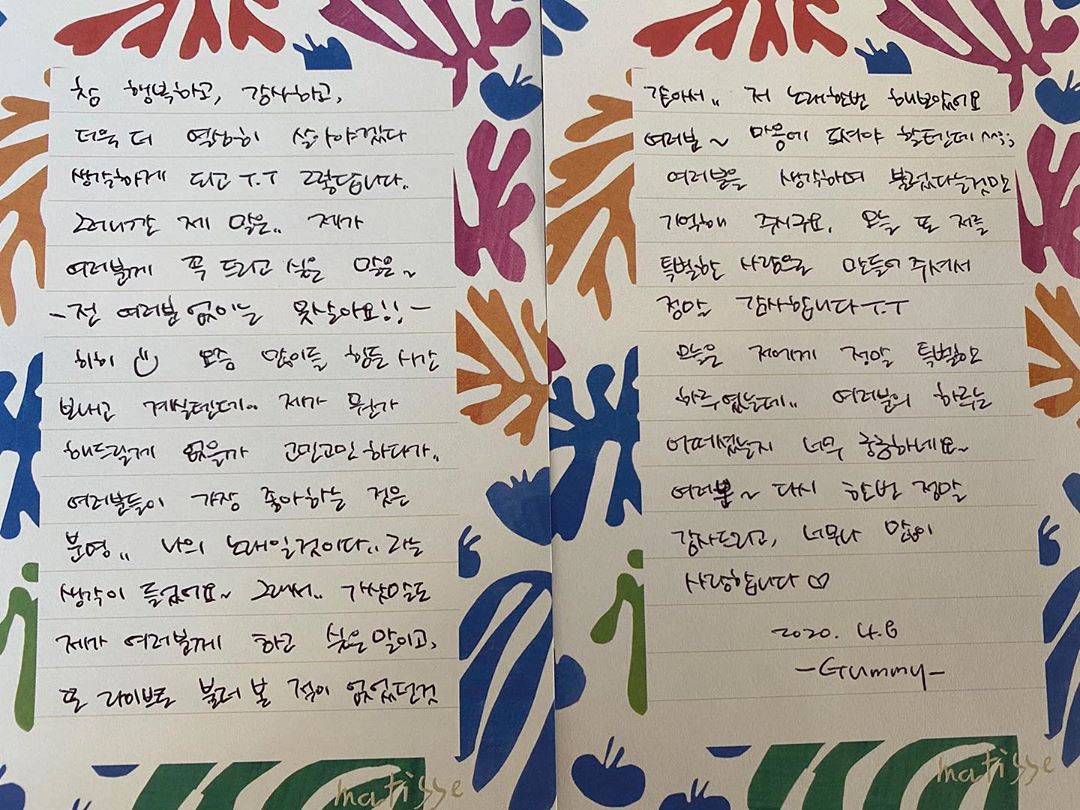 참 행복하고, 감사하고,
더욱 더 열심히 살아야겠다
생각하게 되고 T.T 그렇답니다..
그러니깐 제 말은.. 제가
여러분께 꼭 드리고 싶은 말은~
-전 여러분 없이는 못살아요!!-
히히 요즘 많이들 힘든 시간
보내고 계실텐데.. 제가 뭔가
해드릴게 없을까 고민고민 하다가..
여러분들이 가장 좋아하는 것은
분명.. 나의 노래일것이다.. 라는
생각이 들었어요~ 그래서.. 가삿말도
제가 여러분께 하고 싶은 말이고,
또 라이브로 불러 본 적이 없었던것
matisse
같아서.. 저 노래한번 해보았어요
여러분~ 마음에 드셔야 할텐데^^;;
여러분을 생각하며 불렀다는것만
기억해 주시구요. 오늘 또 저를
특별한 사람으로 만들어 주셔서
정말 감사합니다 T.T
오늘은 저에게 정말 특별한
하루였는데.. 여러분의 하루는
어떠셨는지 너무 궁금하네요~
여러분~ 다시 한번 정말
감사드리고, 너무나 많이
사랑합니다♡
2020. 4.8
-Gummy-
matisse